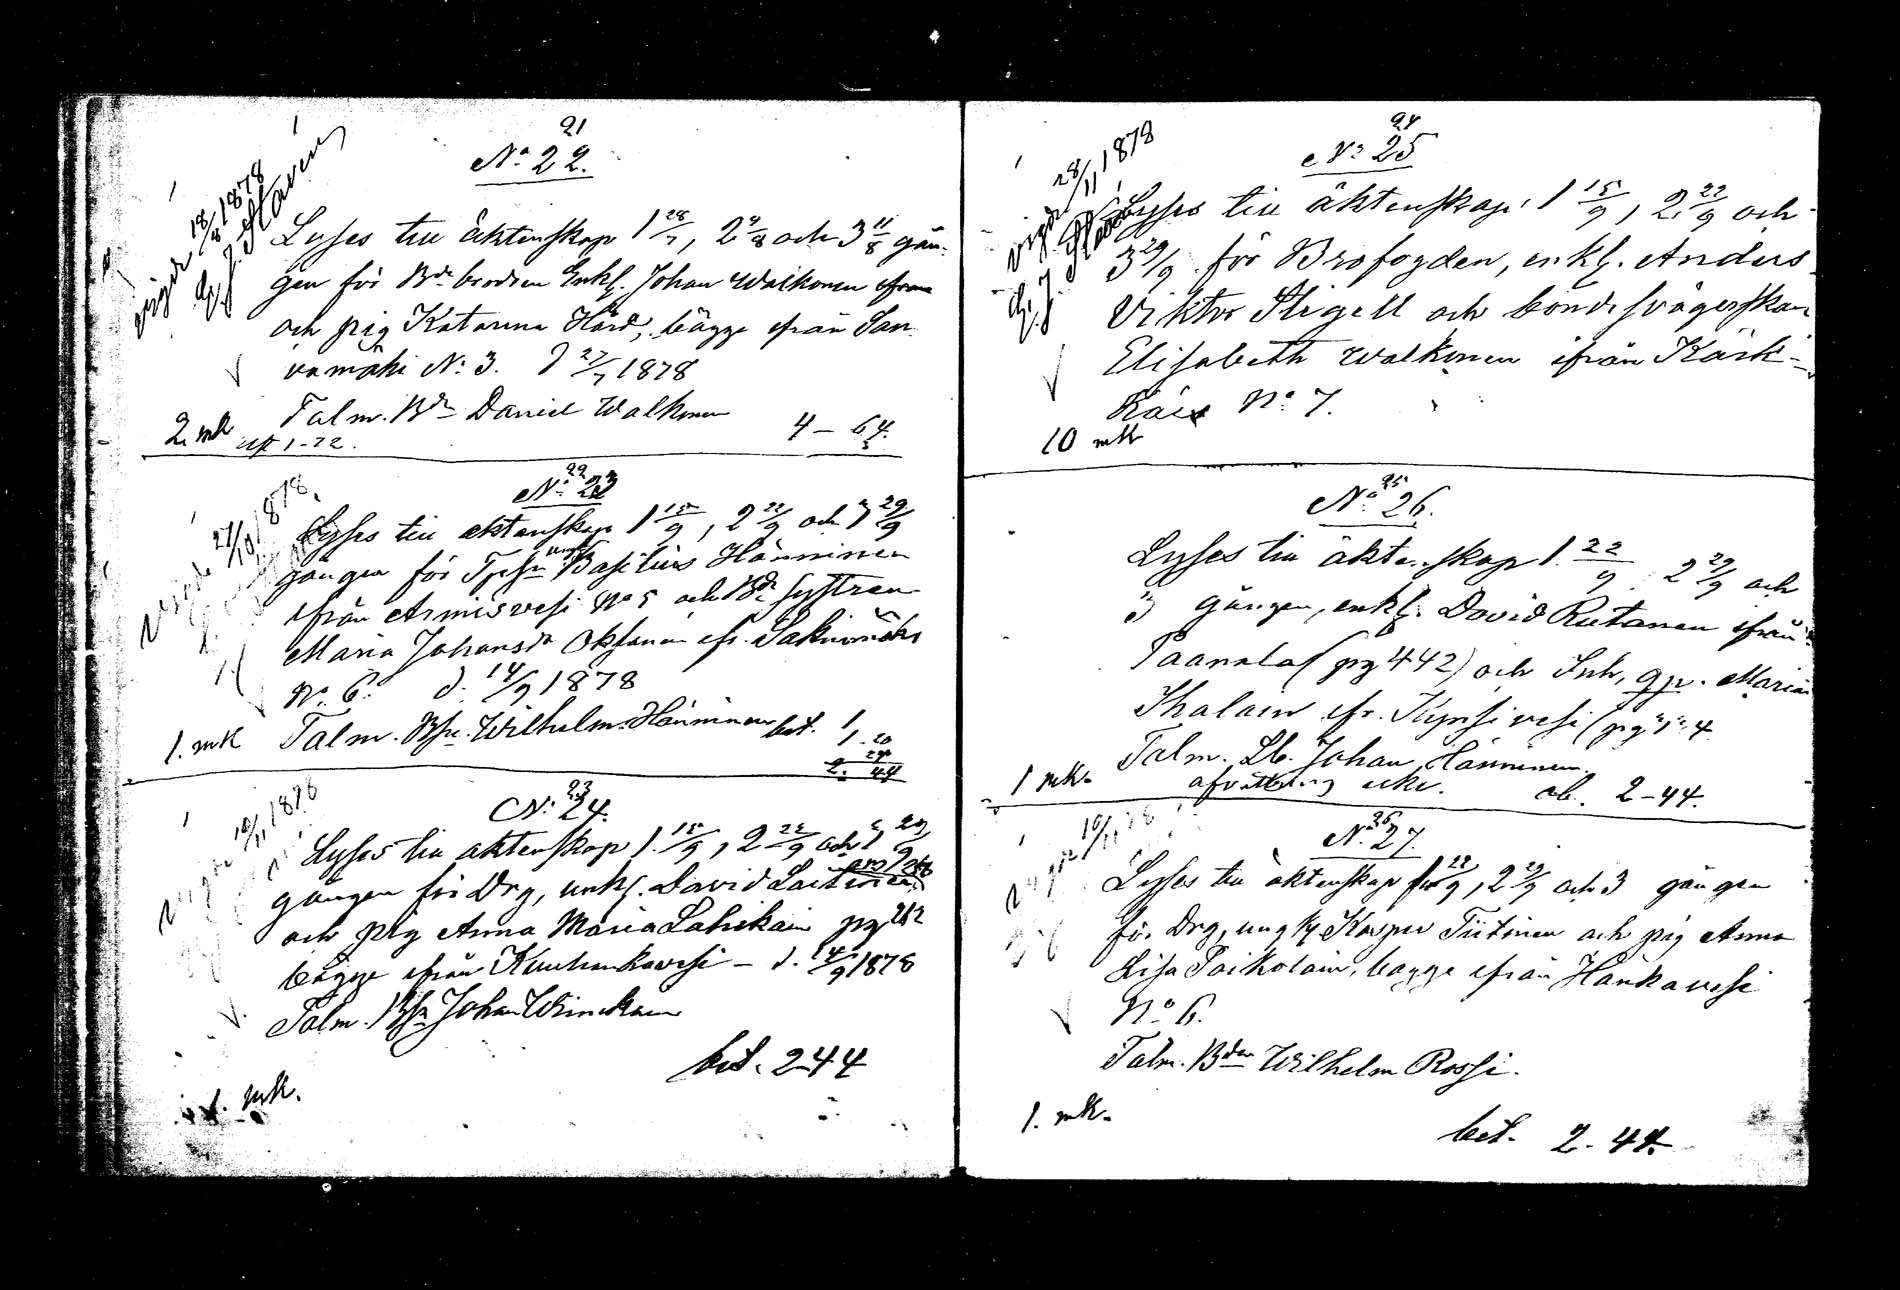 21
No 22.
vigde 18/8 1878
G. J. Stavén
Lyses till äktenskap 1 28/7, 2 4/8 och 3 11/8 gån-
gen för Bde brodren Enkl. Johan Walkonen
och pig Katarina Hård, bägge ifrån San-
kamäki No 3. d 27/7 1878
Talm. Bdn Daniel Walkonen
2 mk
4 – 64.
22
No 23
27/10 1878.
Lyses till äktenskap 1 15/9, 2 22/9 och 3 29/9
gången för Basilius Hänninen
ifrån Armisvesi No 5 och Bde systren
Maria Johansdr Oksanen ifr.
No 6. d. 14/9 1878
1. mk Talm. Wilhelm Hänninen bet. 1
1.20
24
2. 44
23
No 24.
10/11 1878
Lyses till äktenskap 1. 15/9, 2 22/9 och 3 29/9
gången för Drg, unkl. David Laitinen
och pig Anna Maria pg 212
bägge ifrån Kuuhankavesi – d. 14/9 1878
Talm. Johan
bet. 2–44
1. mk.
24
No 25
vigde 28/11 1878
G. J. Stavén
Lyses till äktenskap, 1 15/9, 2 22/9 och
3 29/9 för Brofogden, enkl. Anders
Viktor Stigell och bondesvägerskan
Elisabeth Walkonen ifrån Kärk-
No 7.
10 mk
25
No 26.
Lyses till äktenskap 1. 22/9 2 29/9 och
3 gången, enkl. David Rutanen ifrån
Paanala (pg 442) och Inh, Maria
Ihalain ifr. Kynsivesi (pg
Talm. Johan Hänninen.
1 mk.
2–44.
26
No 27.
10/11 78
Lyses till äktenskap 1 22/9, 2 29/9 och 3 gången
för Drg, ungk Kasper Tiitinen och pig Anna
Lisa Poikolain, bägge ifrån Hankavesi
No 6.
Talm. Bden Wilhelm Rossi.
1. mk.
bet. 2–44.